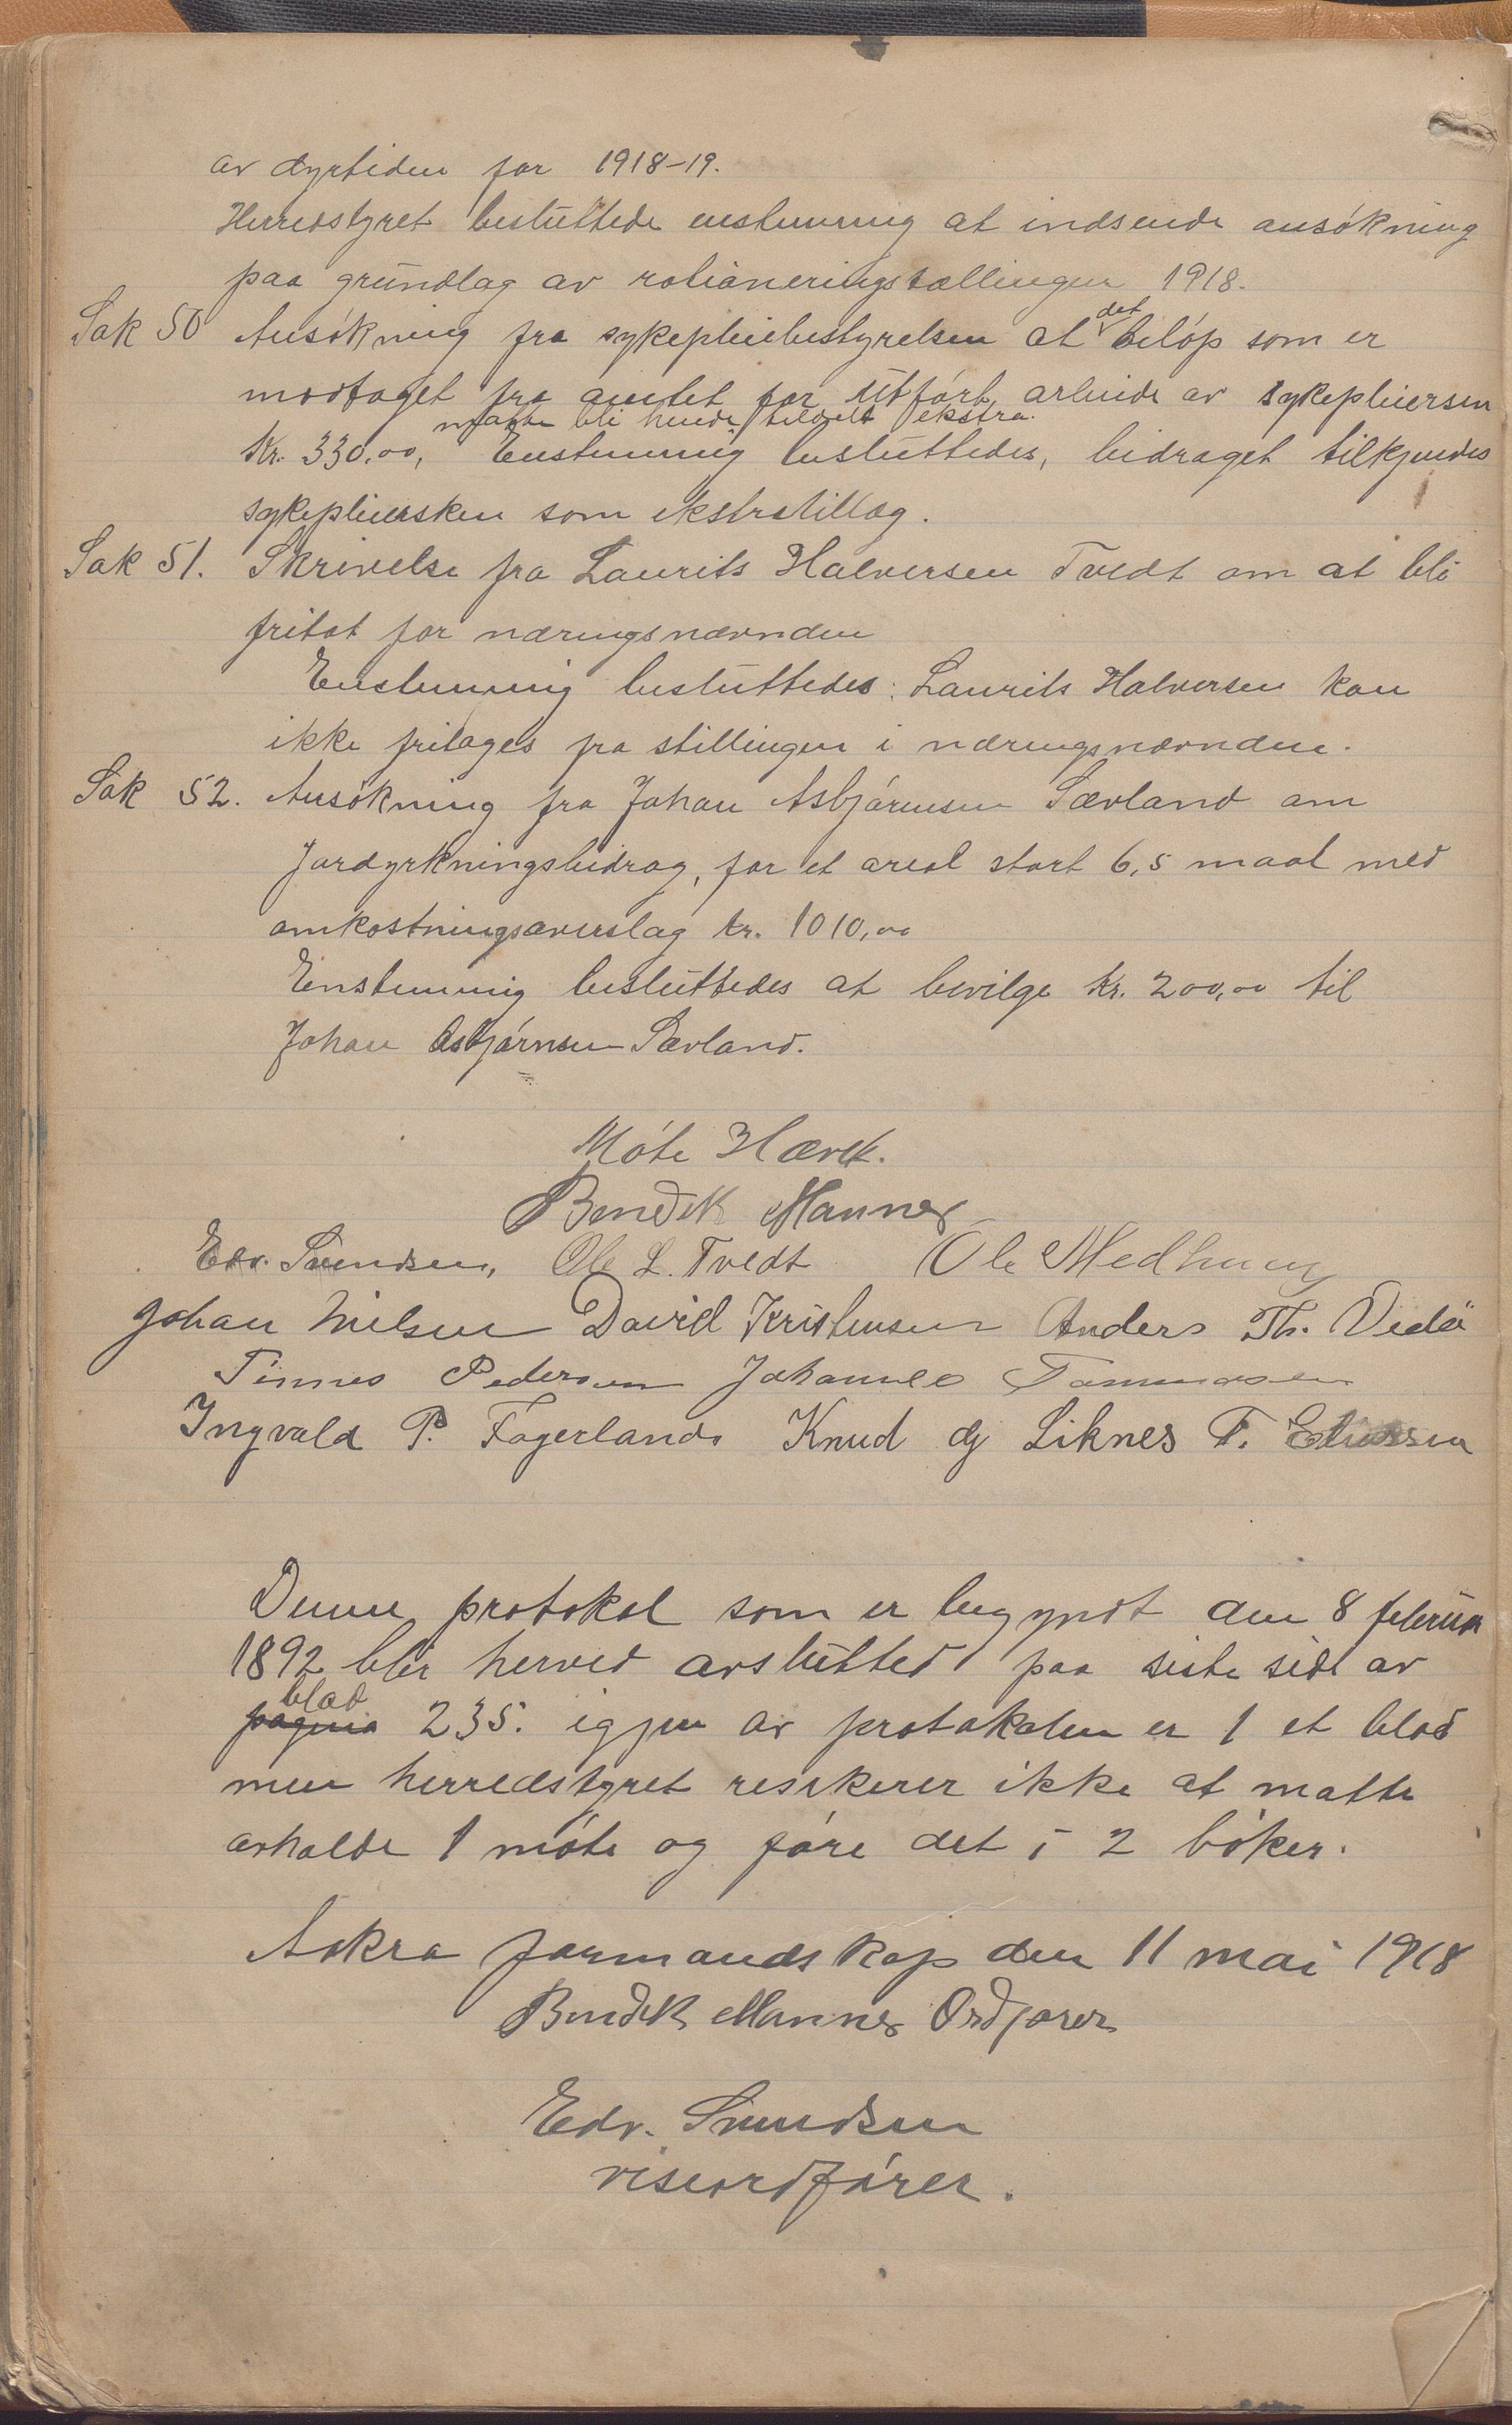 av dyrtiden for 1918-19.
Herredstyret besluttede enstemmig at indsende ansøkning
paa grundlag av rationeringstællingen 1918.
Sak 50 Ansøkning fra sykepleiebestyrelsen at det beløp som er
modtaget fra amtet for utført arbeide av sykepleiersen
maatte bli hende tildelt ekstra.
Kr. 330,00, Enstemmig besluttedes, bidraget tilkjendes
sykepleiersken som ekstratillæg.
Sak 51. Skrivelse fra Laurits Halversen Tvedt om at bli
fritat for næringsnævnden
Enstemmig besluttedes: Laurits Halversen kan
ikke fritages fra stillingen i næringsnævnden.
Sak 52. Ansøkning fra Johan Asbjørnsen Sævland om
Jordyrkningsbidrag, for et areal stort 6,5 maal med
omkostningsoverslag kr. 1010,00
Enstemmig besluttedes at bevilge kr. 200,00 til
Johan Asbjørnsen Sævland.
Møte Hævet.
Bendik Mannes
Edv. Svendsen, Ole L. Tvedt Ole Medhaug
Johan Nilsen David Kristensen Anders Th. Vedø
Tinnes Pedersen Johannes Tommasen
Ingvald P. Fagerland Knud dj Liknes T. Eliassen
Denne protokol som er begyndt den 8 februar
1892 blir herved avsluttet paa siste side av
blad
pagina 235. igjen av protokolen er 1 et blad
men herredstyret resikerer ikke at matte
avholde 1 møte og føre det i 2 bøker.
Aakra formandskap den 11 mai 1918
Bendik Mannes Ordfører
Edv. Svendsen
viseordfører.